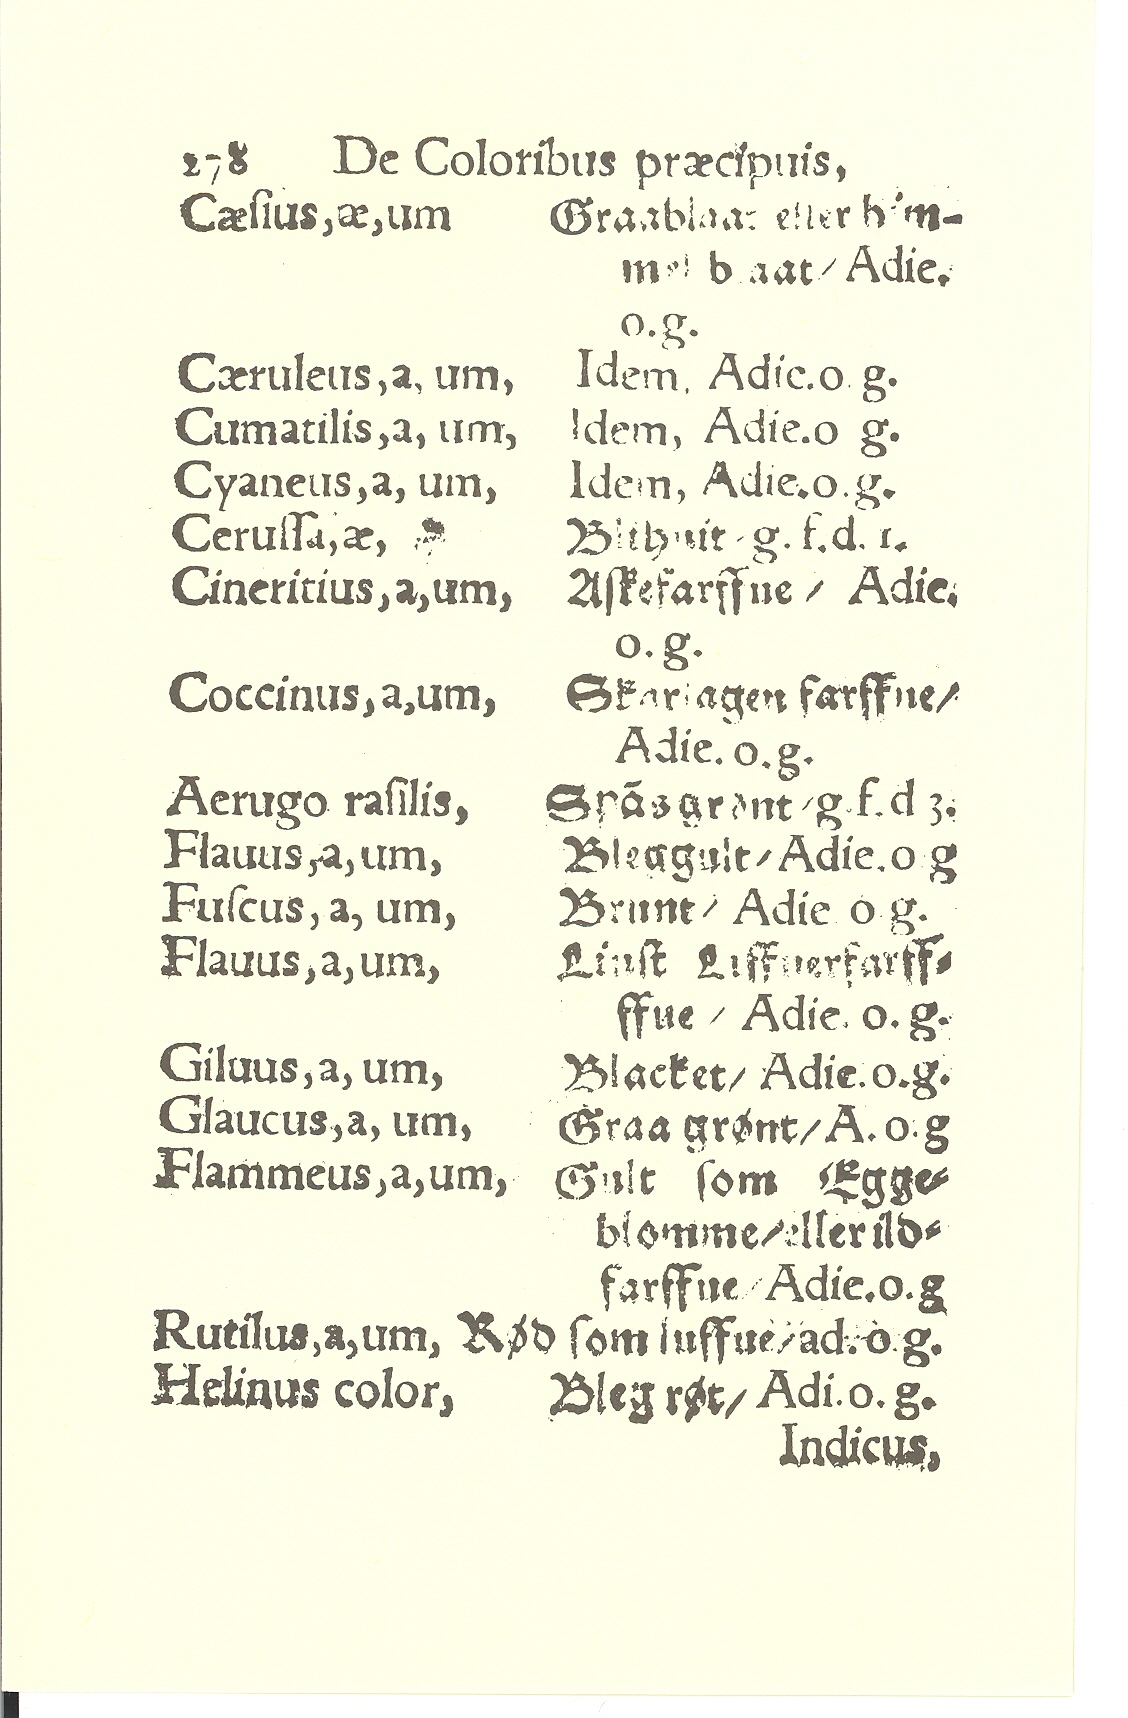 278 De Coloribus præcipuis,
Cæſius,æ,um Graablaat eller him-
mel blaat/ Adie.
o.g.
Cæruleus,a, um, Idem, Adie.o g.
Cumatilis,a, um, Idem, Adie.o g.
Cyaneus,a, um, Idem, Adie.o.g.
Ceruſſa,æ, Blihuit/g. f.d. 1.
Cineritius,a,um, Aſkefarffue / Adie.
o.g.
Coccinus,a,um, Skarlagen farffue/
Adie. o.g.
Aerugo raſilis, Spãsgrønt/g.f.d 3.
Flauus,a,um, Bleggult/Adie.o g
Fuſcus, a, um, Brunt/ Adie o g.
Flauus,a,um, Liuſt Liffuerfarff-
ffue / Adie. o. g.
Giluus,a, um, Blacket/ Adie.o.g.
Glaucus,a, um, Graa grønt/A. o.g
Flammeus,a,um, Gult ſom Egge-
blomme/eller ild-
farffue/Adie.o.g
Rutilus,a,um, Rød ſom luffue/ad.o g.
Helinus color, Bleg røt/ Adi.o. g.
Indicus,